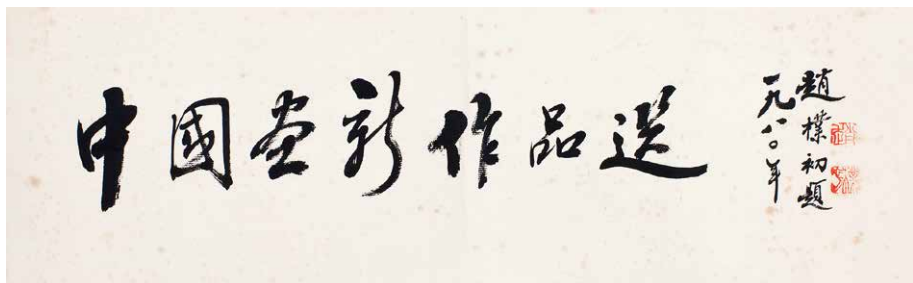 中國画新作品选
趙樸初題
一九八〇年